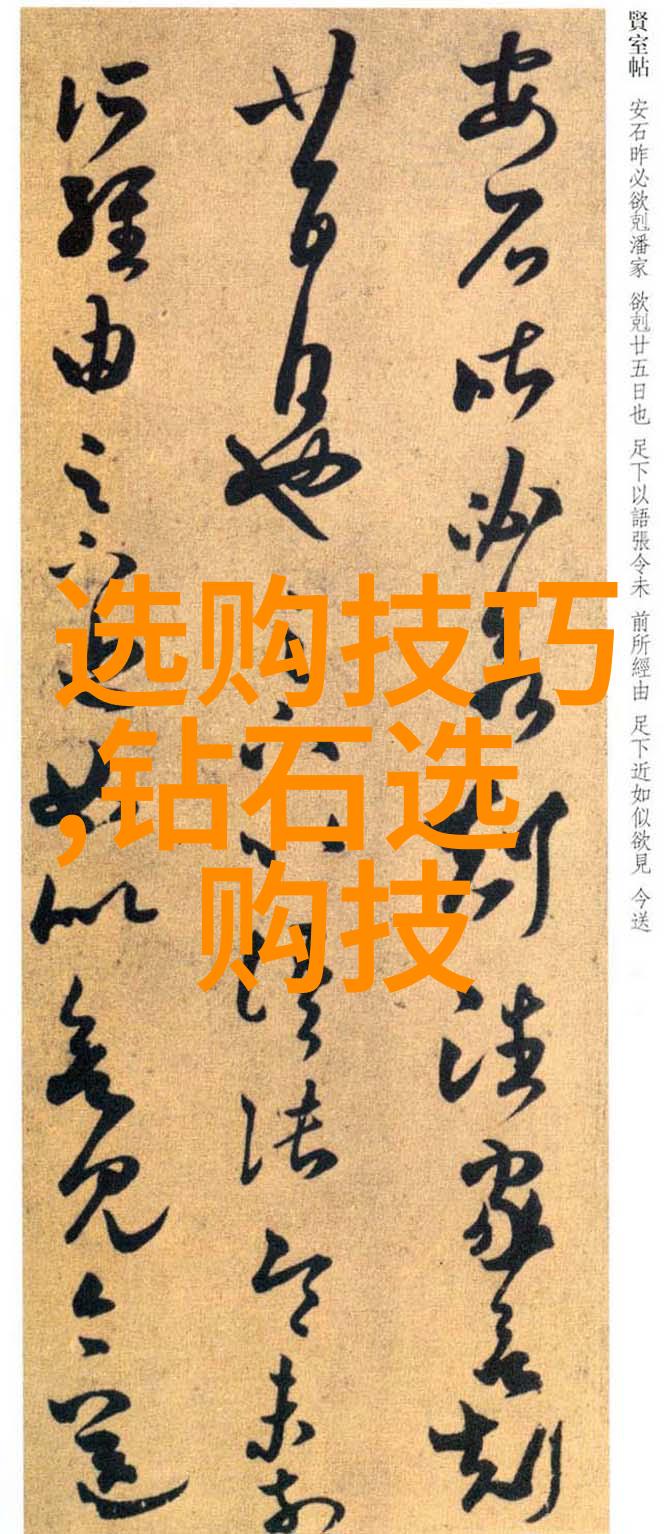 賢室帖 安石昨必欲剋潘家 欲剋廿五日也 足下以語張令未 前所經由 足下近如似欲見 今送
安石昨必欲剋潘家欲剋
廿五日也足下以語張令未前
所經由足下近如似欲見今送
选购技巧
,钻石选
购技